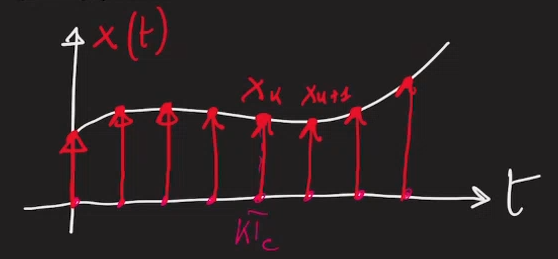 x(t)
xₖ xₖ₊₁
t
KTc